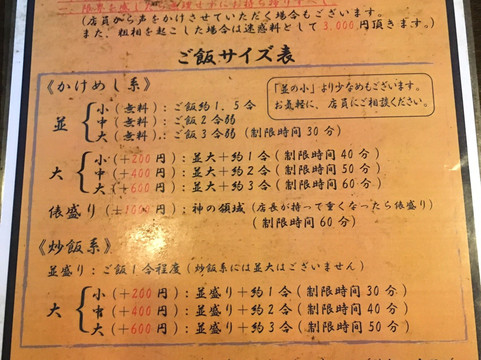 (店員から声をかけさせていただく場合もございます。
また、粗相を起こした場合は迷惑料として3,000円頂きます。)
ご飯サイズ表
《かけめし系》
「並の小」より少なめもございます。
お気軽に、店員にご相談ください。
並
小(無料):ご飯約1.5合
中(無料):ご飯2合弱
大(無料):ご飯3合弱(制限時間30分)
大
小(+200円):並大+約1合(制限時間40分)
中(+400円):並大+約2合(制限時間50分)
大(+600円):並大+約3合(制限時間60分)
俵盛り(+1000円):神の領域(店長が持って重くなったら俵盛り)
(制限時間60分)
《炒飯系》
並盛り:ご飯1合程度(炒飯系には並大はございません)
大
小(+200円):並盛り+約1合(制限時間30分)
中(+400円):並盛り+約2合(制限時間40分)
大(+600円):並盛り+約3合(制限時間50分)